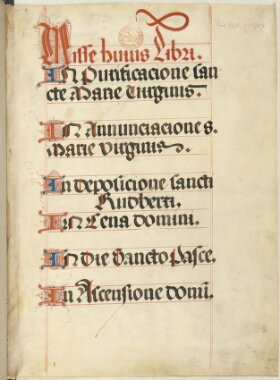 Misse huius Libri.
In Purificacione san
cte Marie Virginis.
In Annunciacione s.
Marie Virginis.
In deposicione sancti
Rudberti.
In Cena domini.
In die Sancto Pasce.
In Ascensione domi.